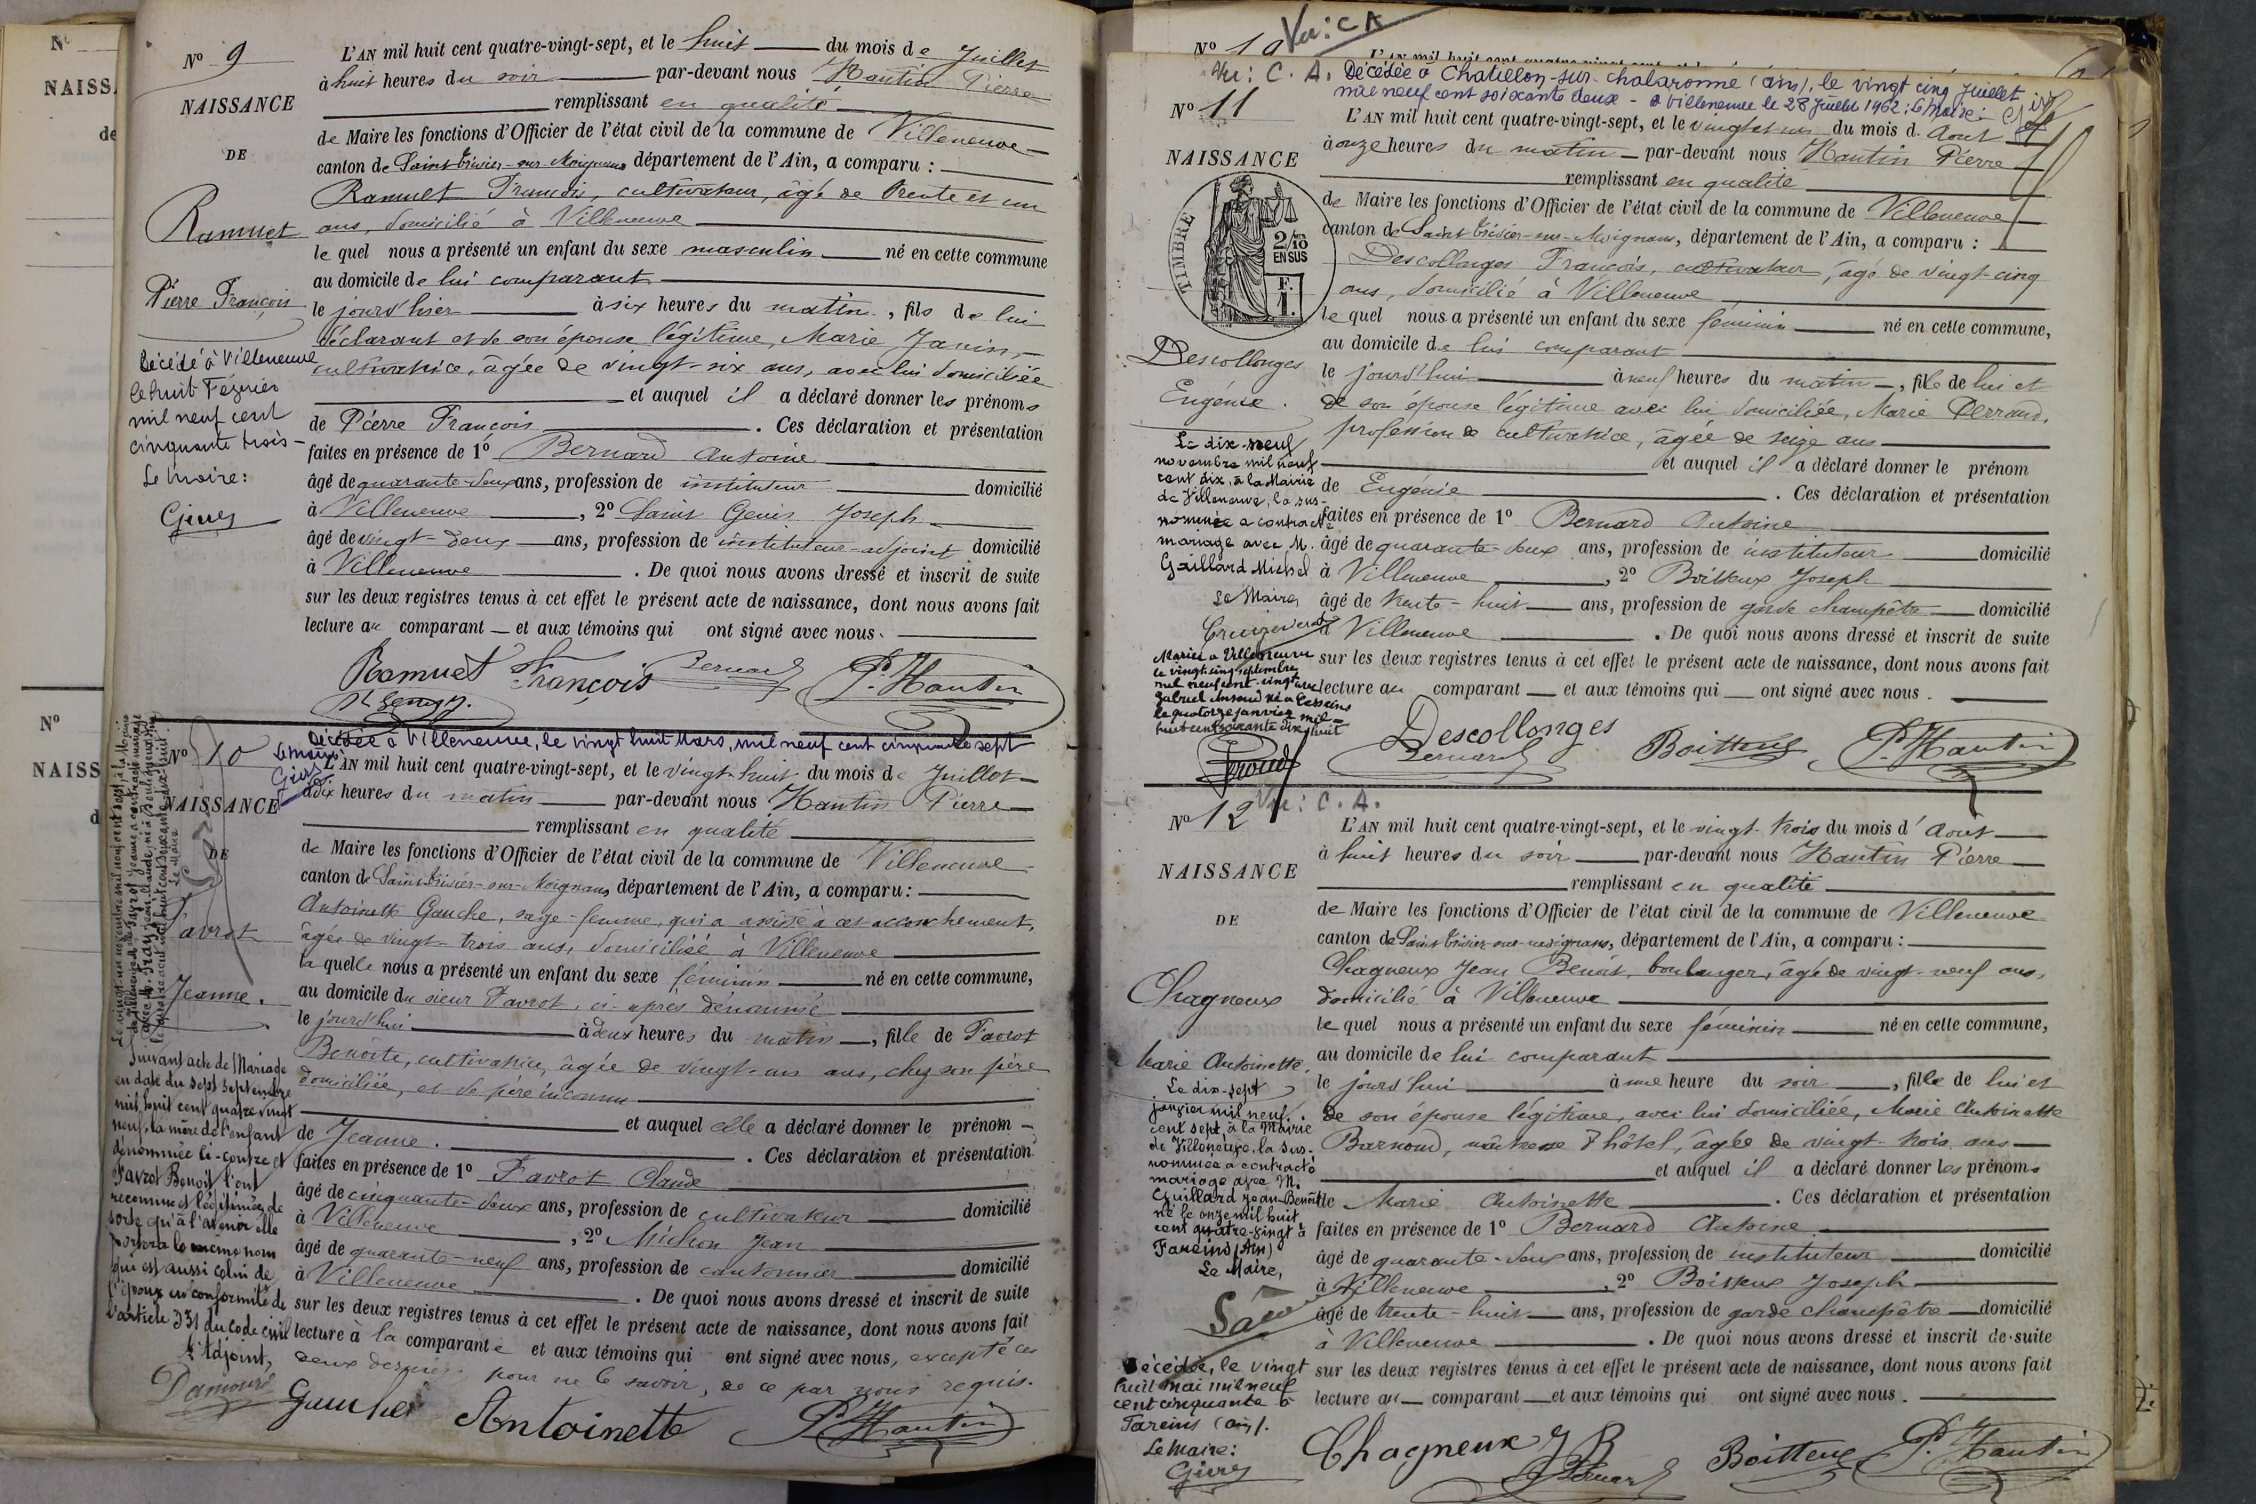 N°
NAISS
de
N°
NAISS
d
N° 9
NAISSANCE
DE
Ramuet
Pierre François
Décédé à Villeneuve
le huit Février
mil neuf cent
cinquante trois –
Le Maire:
L'AN mil huit cent quatre-vingt-sept, et le huit du mois de Juillet
à huit heures du soir par-devant nous Hantin Pierre
remplissant en qualité
de Maire les fonctions d'Officier de l'état civil de la commune de Villeneuve
canton de Saint Trivier-sur-Moignans département de l'Ain, a comparu :
Ramuet François, cultivateur, âgé de trente et un
ans, domicilié à Villeneuve
le quel nous a présenté un enfant du sexe masculin né en cette commune
au domicile de lui comparant
le jour d'hier à six heures du matin, fils de lui
déclarant et de son épouse légitime, Marie Janin,
cultivatrice, âgée de vingt-six ans, avec lui domiciliée
et auquel il a déclaré donner les prénoms
de Pierre François. Ces déclaration et présentation
faites en présence de 1° Bernard Antoine
âgé de quarante-deux ans, profession de instituteur domicilié
à Villeneuve, 2° Saint Genis Joseph
âgé de vingt-deux ans, profession de instituteur-adjoint domicilié
à Villeneuve. De quoi nous avons dressé et inscrit de suite
sur les deux registres tenus à cet effet le présent acte de naissance, dont nous avons fait
lecture au comparant et aux témoins qui ont signé avec nous.
Ramuet François Bernard P. Hantin
St Genis J.
Décédée à Villeneuve, le vingt huit Mars, mil neuf cent cinquante sept
Le Maire:
N° 10
NAISSANCE
DE
Favrot
Jeanne.
Suivant acte de Mariage
en date du sept septembre
mil huit cent quatre vingt
neuf, la mère de l'enfant
dénommée ci-contre et
Favrot Benoit l'ont
reconnue et légitimée, de
sorte qu'à l'avenir elle
portera le même nom
qui est aussi celui de
l'époux en conformité de
l'article 331 du code civil
L'Adjoint,
Damour
L'AN mil huit cent quatre-vingt-sept, et le vingt-huit du mois de Juillet
à dix heures du matin par-devant nous Hantin Pierre
remplissant en qualité
de Maire les fonctions d'Officier de l'état civil de la commune de Villeneuve
canton de Saint Trivier-sur-Moignans département de l'Ain, a comparu :
Antoinette Gauche, sage-femme, qui a assisté à cet accouchement,
âgée de vingt-trois ans, domiciliée à Villeneuve
la quelle nous a présenté un enfant du sexe féminin né en cette commune,
au domicile du sieur Favrot, ci-après dénommé
le jourd'hui à deux heures du matin, fille de Favrot
Benoîte, cultivatrice, âgée de vingt-un ans, chez son père
domiciliée, et de père inconnu
et auquel elle a déclaré donner le prénom
de Jeanne. Ces déclaration et présentation
faites en présence de 1° Favrot Claude
âgé de cinquante-deux ans, profession de cultivateur domicilié
à Villeneuve, 2° Michon Jean
âgé de quarante-neuf ans, profession de cantonnier domicilié
à Villeneuve. De quoi nous avons dressé et inscrit de suite
sur les deux registres tenus à cet effet le présent acte de naissance, dont nous avons fait
lecture à la comparante et aux témoins qui ont signé avec nous, excepté ces
deux derniers pour ne le savoir, de ce par nous requis.
Gauche Antoinette P. Hantin
Vu: C A
N° 10
Vu: C. A. Décédée à Chatillon-sur-Chalaronne (Ain), le vingt cinq Juillet
mil neuf cent soixante deux – à Villeneuve le 28 Juillet 1962: Le Maire:
N° 11
NAISSANCE
TIMBRE
2/10
EN SUS
F.
1.
Descollonges
Eugénie.
Le dix-neuf
novembre mil neuf
cent dix, à la Mairie
de Villeneuve, la sus-
nommée a contracté
mariage avec M.
Gaillard Michel
Le Maire,
Mariée à Villeneuve
le vingt cinq septembre
mil neuf cent vingt avec
Gabriel né à Cesseins
le quatorze janvier mil
huit cent soixante dix huit
L'AN mil huit cent quatre-vingt-sept, et le vingt et un du mois d. Aout
à onze heures du matin par-devant nous Hantin Pierre
remplissant en qualité
de Maire les fonctions d'Officier de l'état civil de la commune de Villeneuve
canton de Saint Trivier-sur-Moignans, département de l'Ain, a comparu :
Descollonges François, cultivateur, âgé de vingt-cinq
ans, domicilié à Villeneuve
le quel nous a présenté un enfant du sexe féminin né en cette commune,
au domicile de lui comparant
le jourd'hui à neuf heures du matin, fille de lui et
de son épouse légitime avec lui domiciliée, Marie Perraud,
profession de cultivatrice, âgée de seize ans
et auquel il a déclaré donner le prénom
de Eugénie. Ces déclaration et présentation
faites en présence de 1° Bernard Antoine
âgé de quarante-deux ans, profession de instituteur domicilié
à Villeneuve, 2° Boitteux Joseph
âgé de trente-huit ans, profession de garde champêtre domicilié
à Villeneuve. De quoi nous avons dressé et inscrit de suite
sur les deux registres tenus à cet effet le présent acte de naissance, dont nous avons fait
lecture au comparant et aux témoins qui ont signé avec nous.
Descollonges Bernard Boitteux P. Hantin
Vu: C. A.
N° 12
NAISSANCE
DE
Chagneux
Marie Antoinette.
Le dix-sept
janvier mil neuf
cent sept, à la Mairie
de Villeneuve, la sus-
nommée a contracté
mariage avec M.
Guillard Jean-Benoit
né le onze mil huit
cent quatre-vingt à
Fareins (Ain)
Le Maire,
Décédée, le vingt
huit mai mil neuf
cent cinquante à
Fareins (Ain).
Le Maire:
L'AN mil huit cent quatre-vingt-sept, et le vingt-trois du mois d'Août
à huit heures du soir par-devant nous Hantin Pierre
remplissant en qualité
de Maire les fonctions d'Officier de l'état civil de la commune de Villeneuve
canton de Saint Trivier-sur-Moignans, département de l'Ain, a comparu :
Chagneux Jean Benoit, boulanger, âgé de vingt-neuf ans,
domicilié à Villeneuve
le quel nous a présenté un enfant du sexe féminin né en cette commune,
au domicile de lui comparant
le jourd'hui à une heure du soir, fille de lui et
de son épouse légitime, avec lui domiciliée, Marie Antoinette
Barnoud, maîtresse d'hôtel, âgée de vingt-trois ans
et auquel il a déclaré donner les prénoms
de Marie Antoinette. Ces déclaration et présentation
faites en présence de 1° Bernard Antoine
âgé de quarante-deux ans, profession de instituteur domicilié
à Villeneuve, 2° Boitteux Joseph
âgé de trente-huit ans, profession de garde champêtre domicilié
à Villeneuve. De quoi nous avons dressé et inscrit de suite
sur les deux registres tenus à cet effet le présent acte de naissance, dont nous avons fait
lecture au comparant et aux témoins qui ont signé avec nous.
Chagneux J B Bernard Boitteux P. Hantin